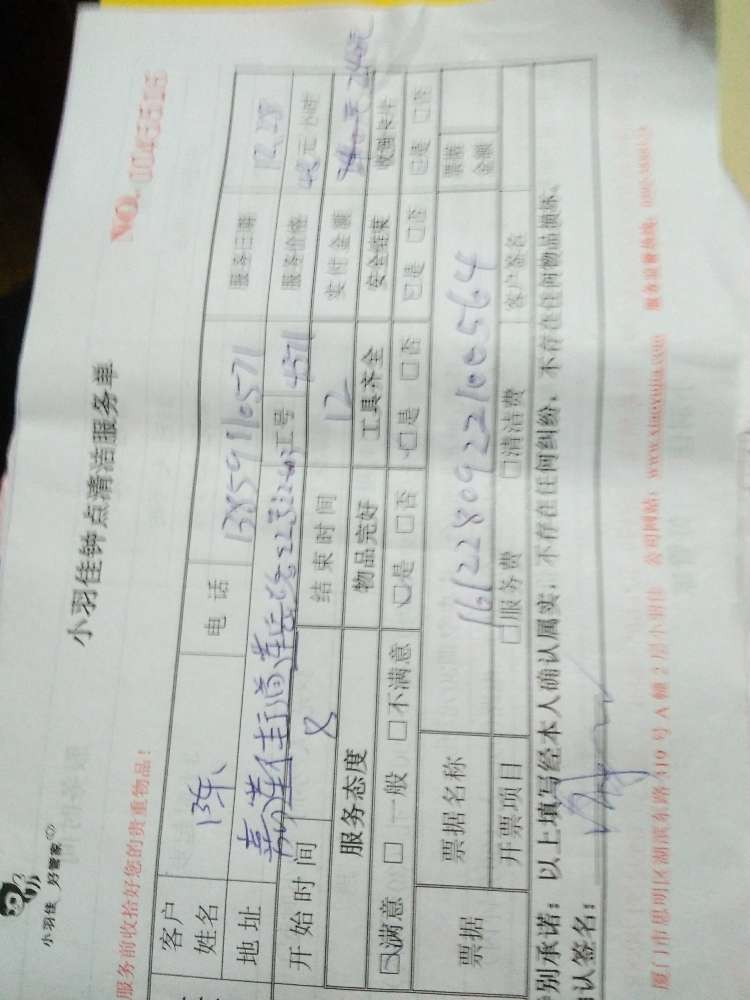 小羽佳 好管家
小羽佳钟点清洁服务单
NO.
服务前收拾好您的贵重物品！
客户姓名 陈 电话 13859110571 服务日期 12.28
地址 嘉莲街道莲岳路 工号 4571 服务价格 元/小时
开始时间 8 结束时间 12 实付金额
服务态度 物品完好 工具齐全 安全链接 收费卡片
☑满意 □一般 □不满意 □是 □否 □是 □否 □是 □否 □是 □否
票据 票据名称 1612280922100564 票据金额
开票项目 □服务费 □清洁费 客户签名
别承诺：以上填写经本人确认属实，不存在任何纠纷，不存在任何物品损坏。
认签名：
厦门市思明区湖滨东路319号A幢2层小羽佳 公司网站：www.xiaoyujia.com 服务监督热线：